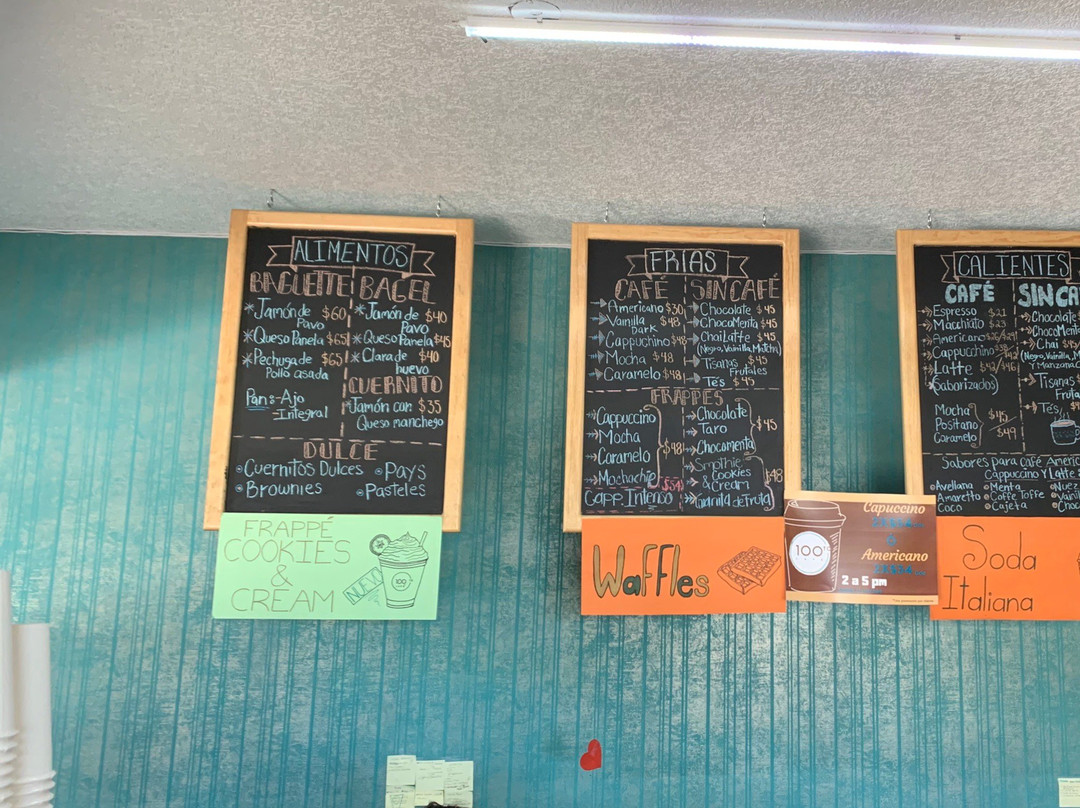 ALIMENTOS
BAGUETTE
*Jamón de $60
Pavo
*Queso Panela $65
*Pechuga de $65
Pollo asada
Pan:-Ajo
-Integral
BAGEL
*Jamón de $40
Pavo
*Queso Panela $45
*Clara de $40
huevo
CUERNITO
*Jamón con $35
Queso manchego
DULCE
Cuernitos Dulces
Brownies
Pays
Pasteles
FRAPPÉ
COOKIES
&
CREAM
NUEVO
100%
FRIAS
CAFÉ
Americano $30
Vainilla $48
Dark
Cappuchino $48
Mocha $48
Caramelo $48
SIN CAFÉ
Chocolate $45
ChocoMenta $45
Chai Latte $45
(Negro, Vainilla, Matcha)
Tisanas $45
Frutales
Tés $45
FRAPPES
Cappuccino
Mocha
Caramelo
Mochachip
$48
Capp. Intenso $54
Chocolate
Taro
Chocomenta
$45
Smothie
Cookies
& Cream
Granilla de Fruta
$48
Waffles
100%
Capuccino
Americano
2 a 5 pm
CALIENTES
CAFÉ
Espresso $21
Macchiato $23
Americano
Cappucchino
Latte $42/$46
(Saborizados)
Mocha
Positano
Caramelo
$45
$49
SIN CA
Chocolate
ChocoMent
Chai
(Negro, Vainilla, M
Y Manzana
Tisanas
Fruta
Tés
Sabores para Café Americ
Cappuccino Y Latte
Avellana
Amaretto
Coco
Menta
Coffe Toffe
Cajeta
Nuez
Vaini
Choc
Soda
Italiana